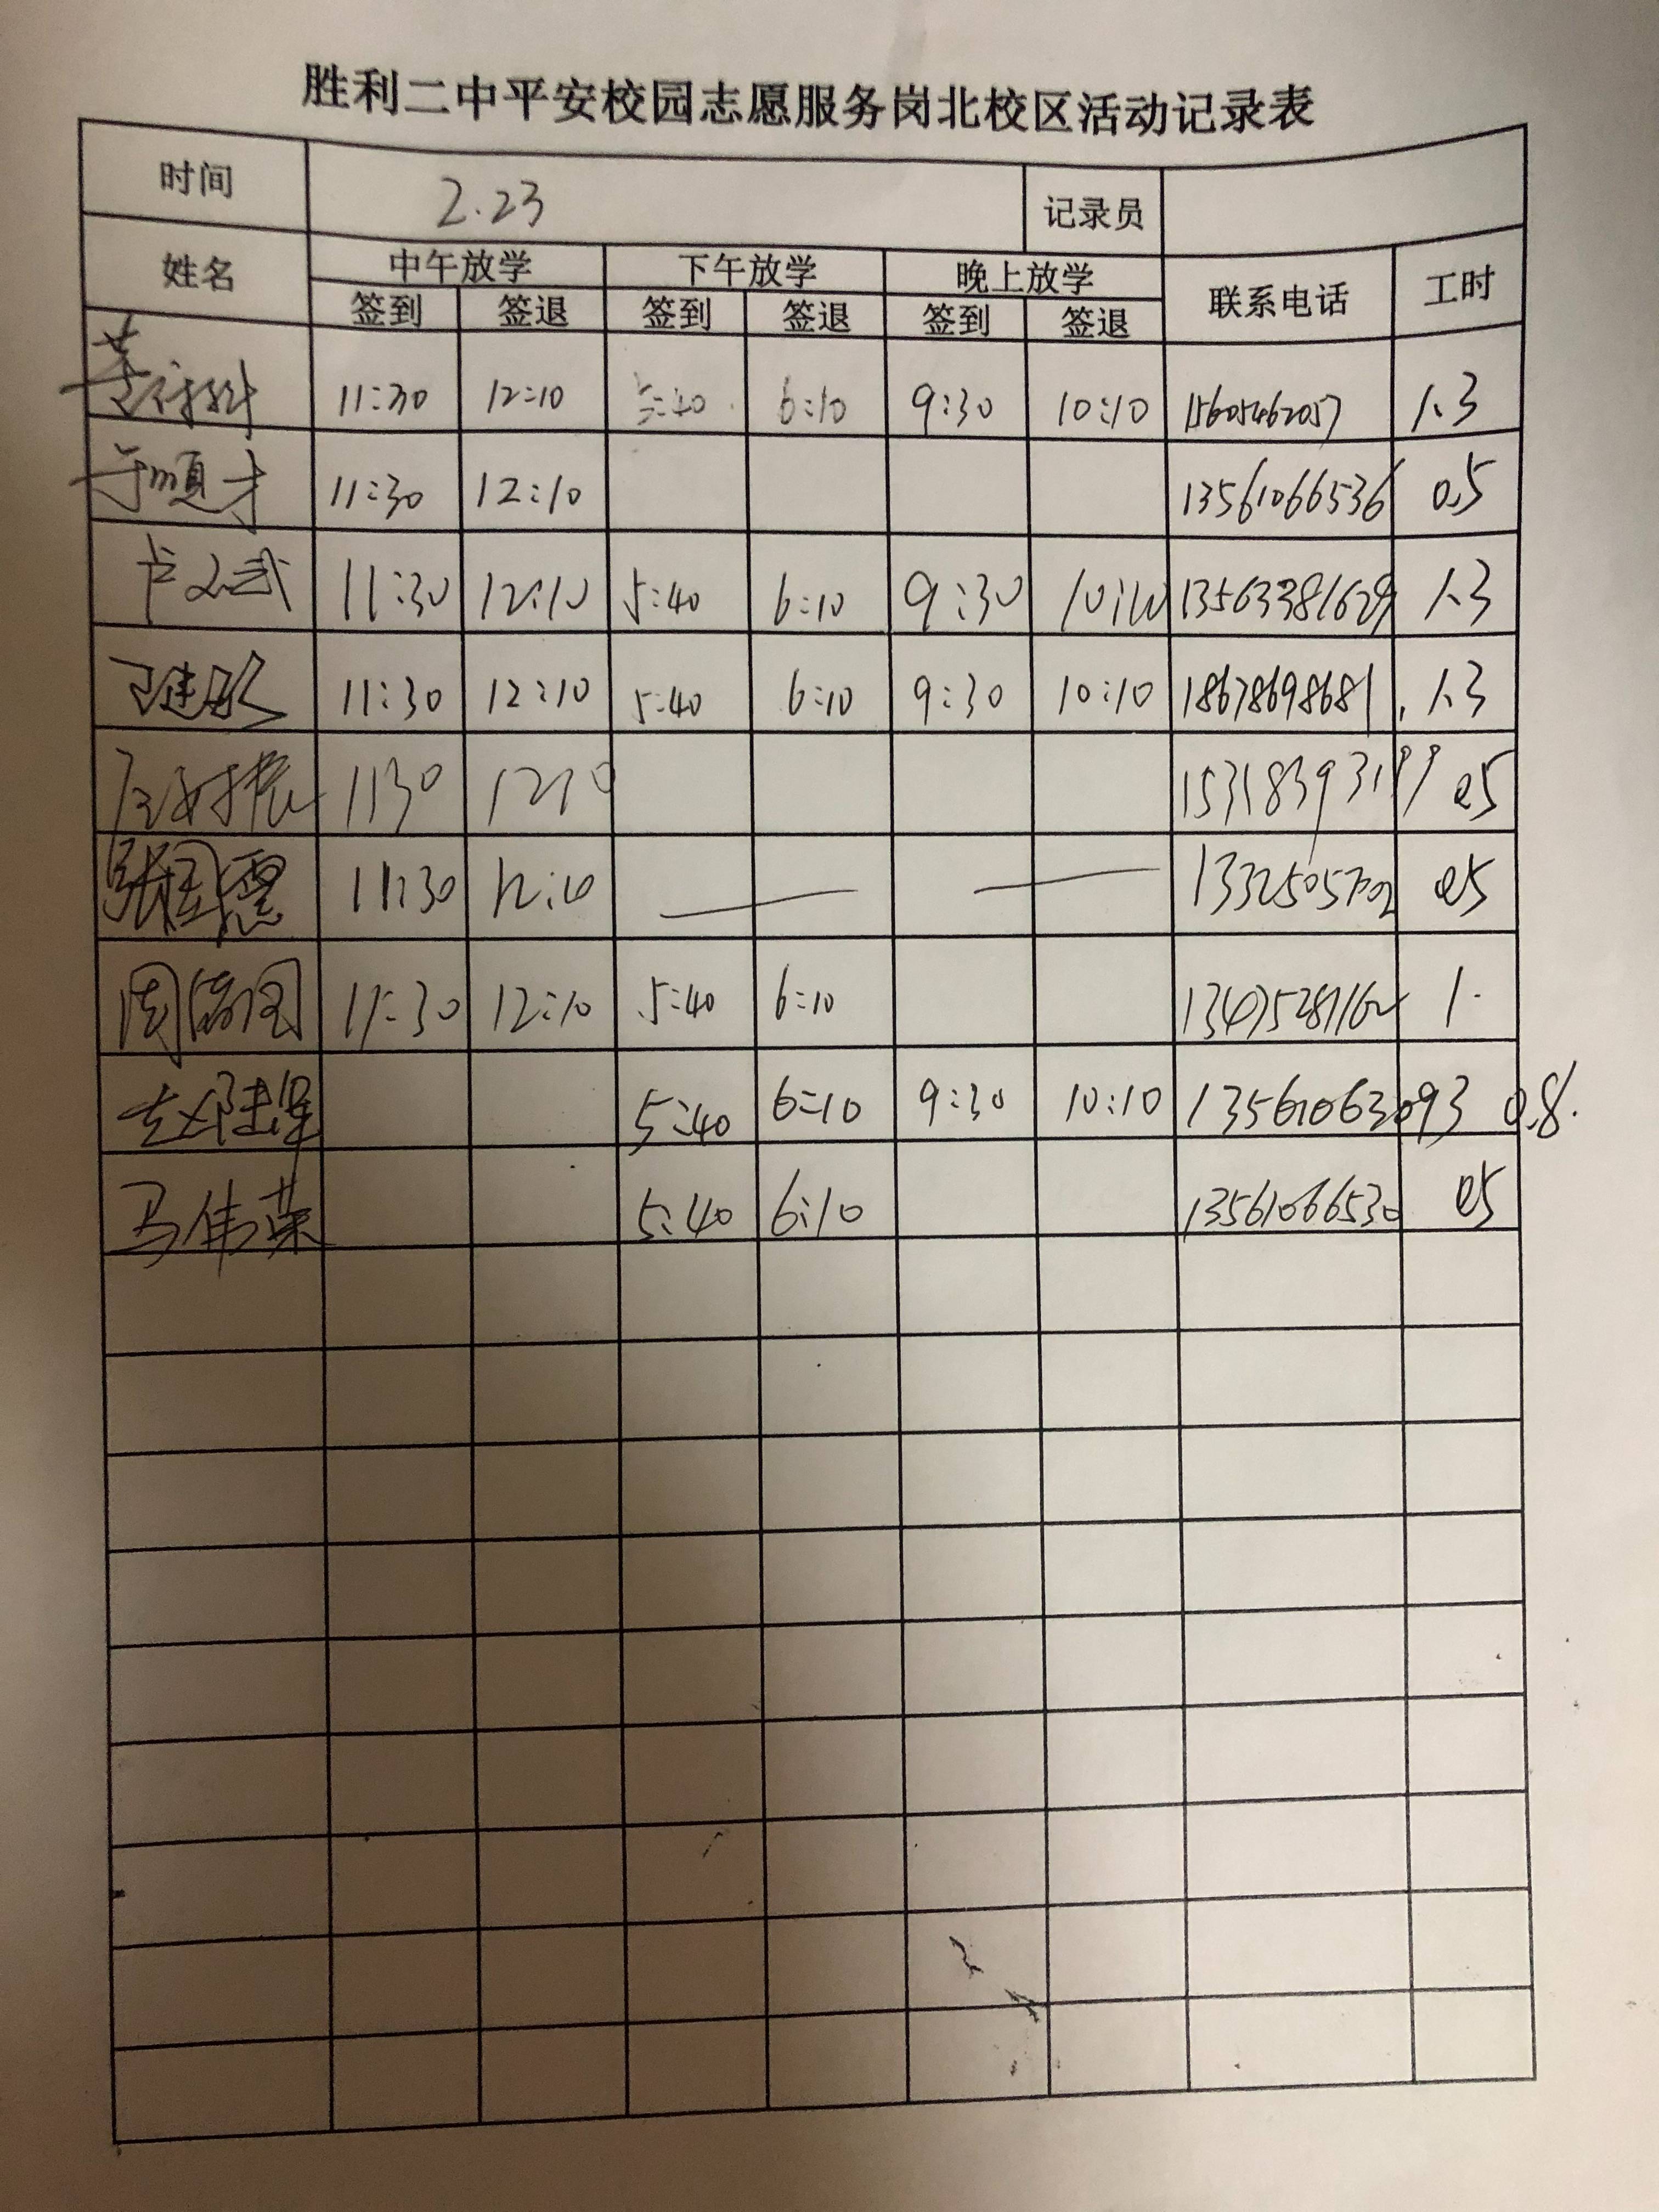 胜利二中平安校园志愿服务岗北校区活动记录表
时间 2.23 记录员
姓名 中午放学 下午放学 晚上放学 联系电话 工时
签到 签退 签到 签退 签到 签退
11:30 12:10 5:40 6:10 9:30 10:10 15605462057 1.3
于顺才 11:30 12:10 13561066536 0.5
卢文武 11:30 12:10 5:40 6:10 9:30 10:10 13563381629 1.3
11:30 12:10 5:40 6:10 9:30 10:10 18678698681 1.3
1130 1210 15318393199 0.5
张国震 11:30 12:10 13325057702 0.5
周 11:30 12:10 5:40 6:10 13475287162 1.
赵建军 5:40 6:10 9:30 10:10 13561063093 0.8.
马伟荣 5:40 6:10 13561066530 0.5